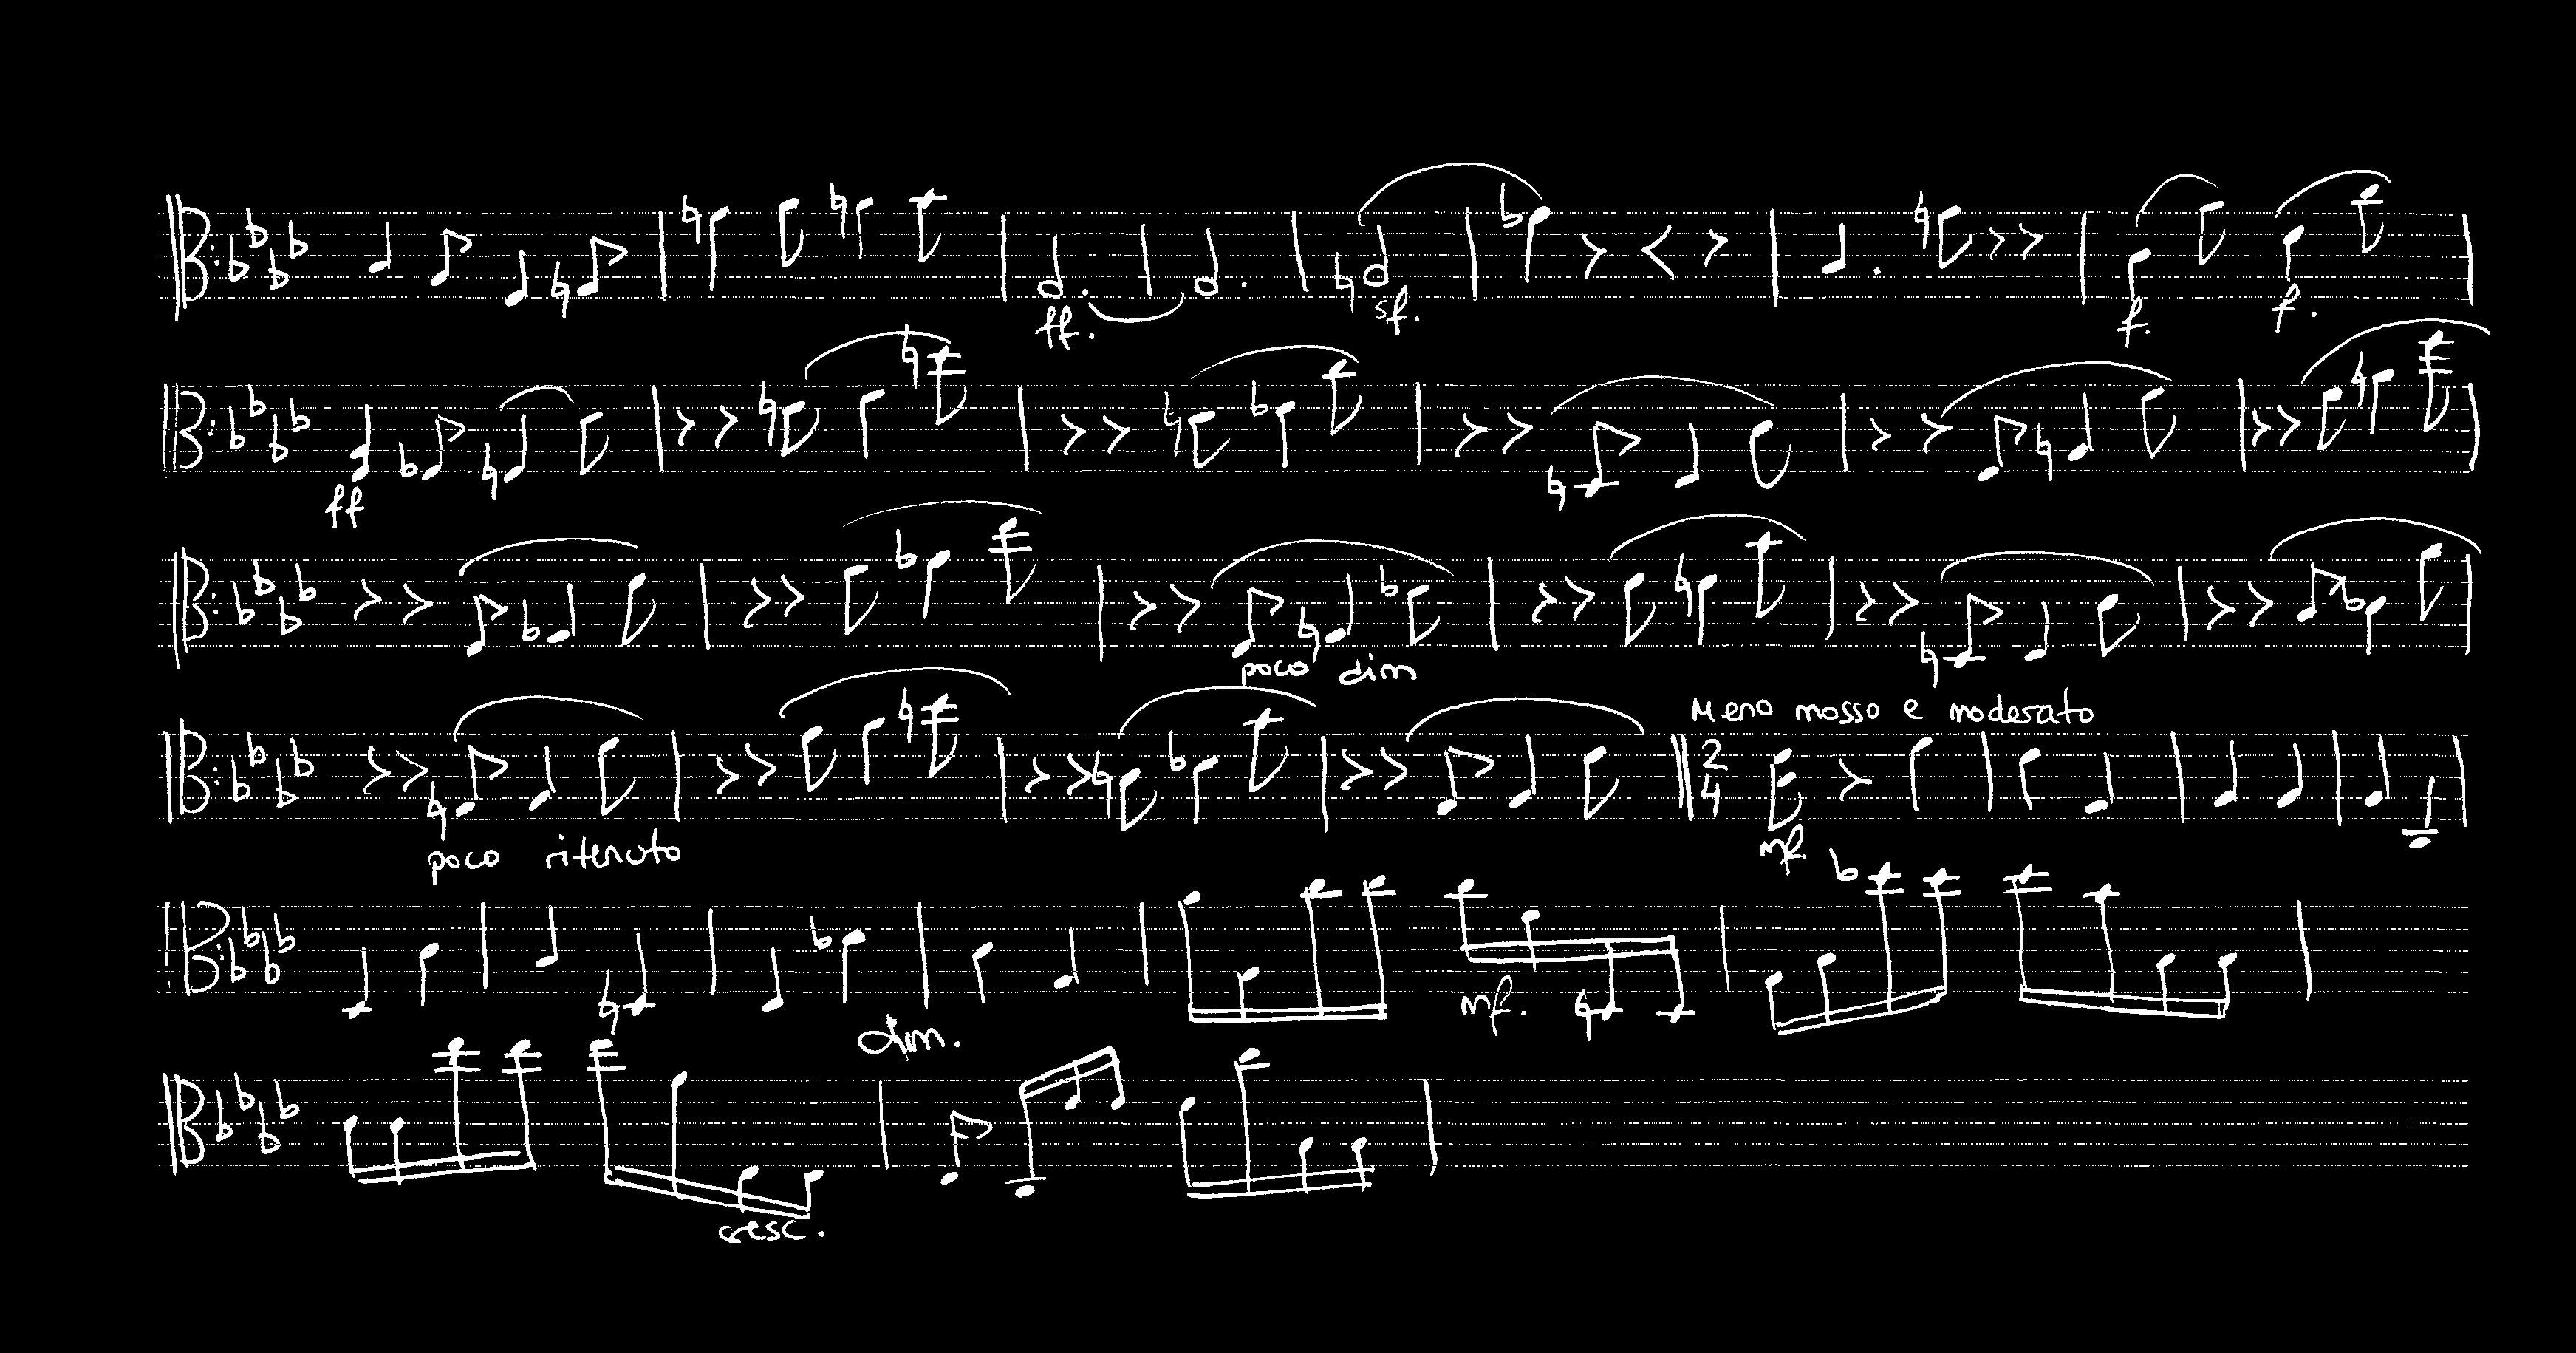 ff. sf. f. f.
ff
poco dim
Meno mosso e moderato
2
4
mf.
poco ritenuto
mf.
dim.
cresc.